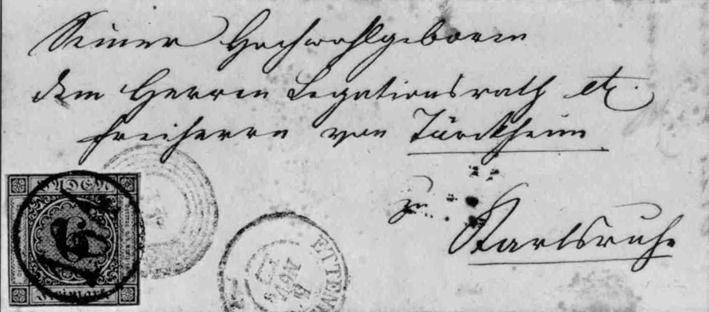 Seiner Hochwohlgeboren
dem Herren Legationsrath etc.
Freiherrn von Türckheim
zu
Karlsruhe
BADEN
6
Freimarke
ETTEN
NOV